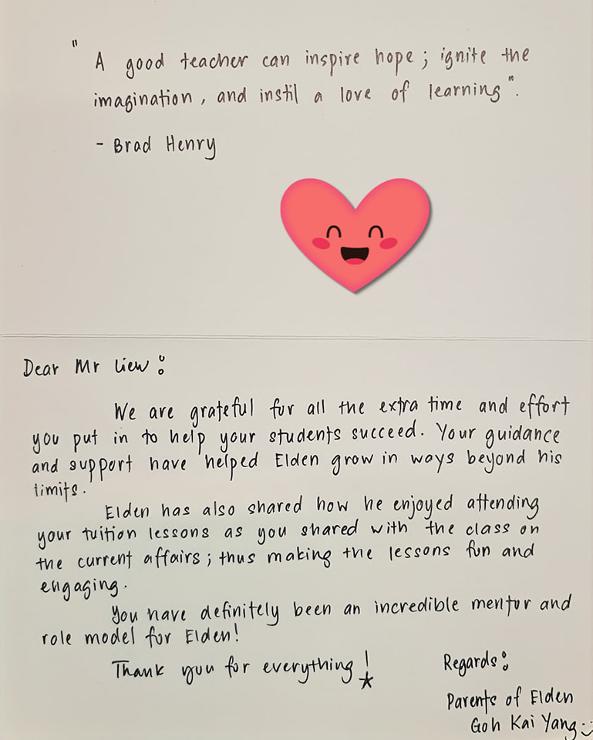 "
A good teacher can inspire hope; ignite the
imagination, and instil a love of learning".
- Brad Henry
Dear Mr Liew:
We are grateful for all the extra time and effort
you put in to help your students succeed. Your guidance
and support have helped Elden grow in ways beyond his
limits.
Elden has also shared how he enjoyed attending
your tuition lessons as you shared with the class on
the current affairs; thus making the lessons fun and
engaging.
You have definitely been an incredible mentor and
role model for Elden!
Thank you for everything!
Regards:
Parents of Elden
Goh Kai Yang :)